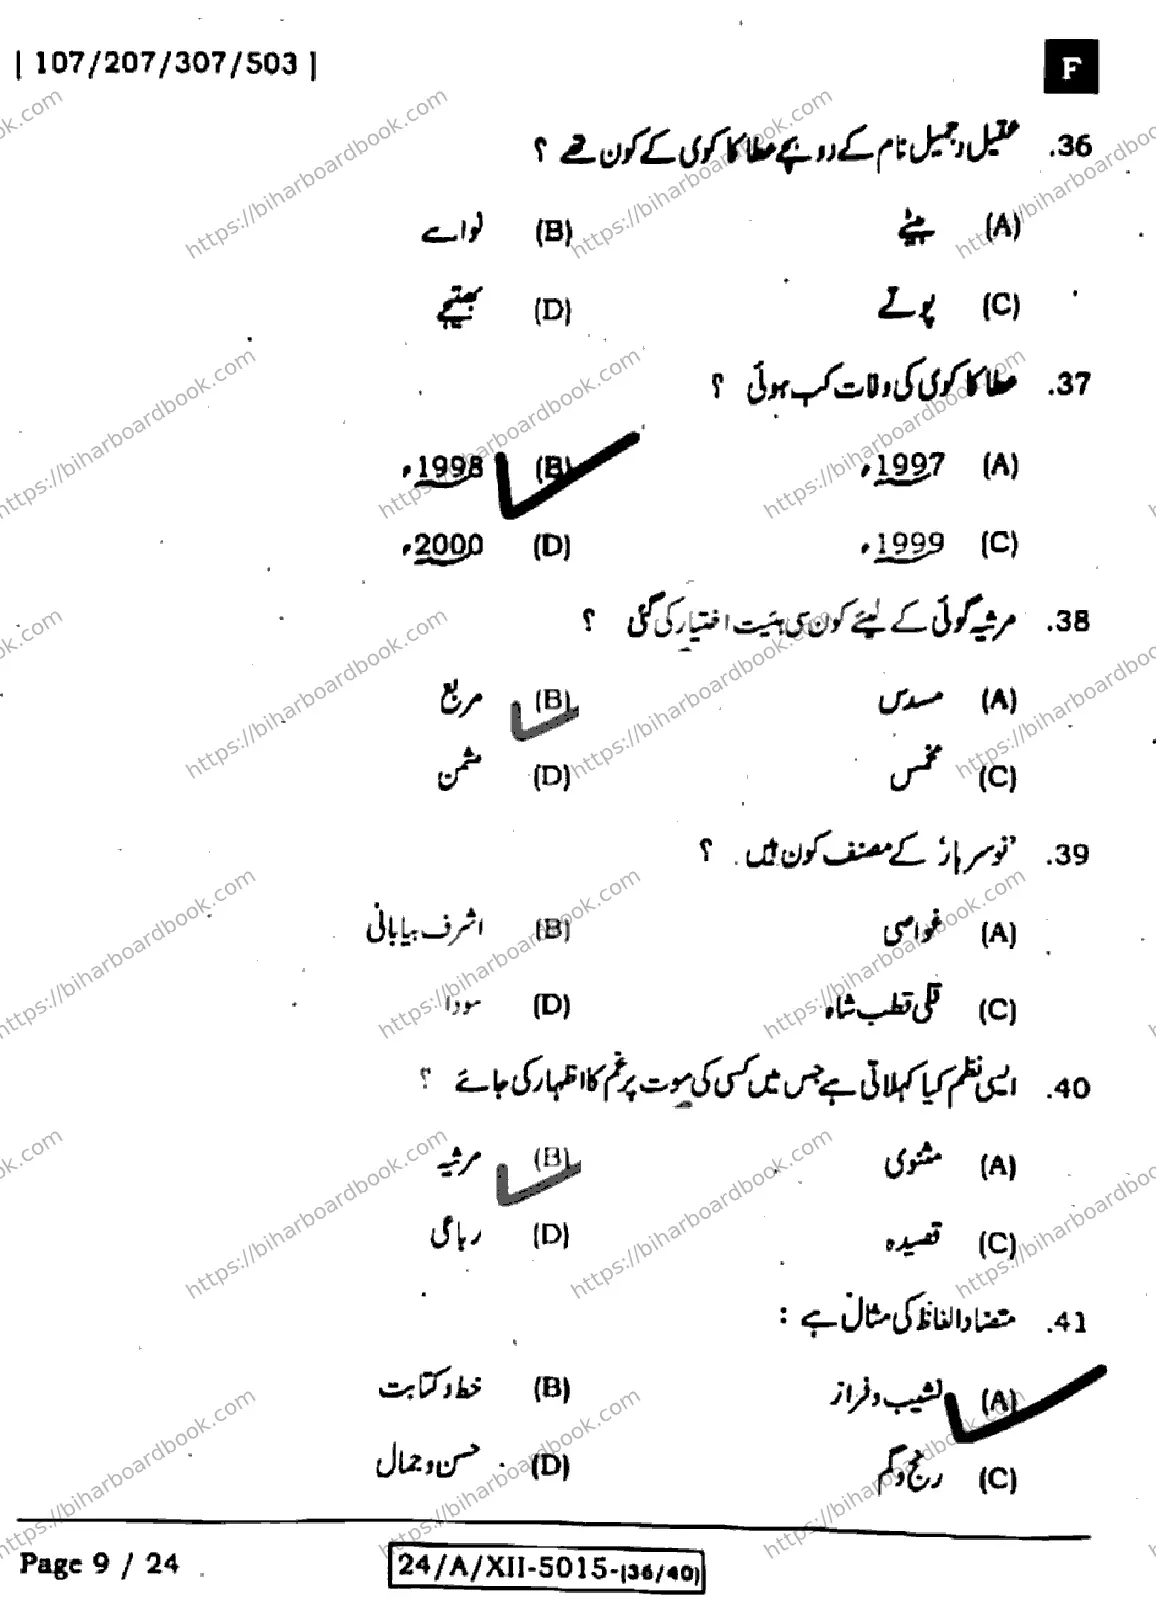 [ 107/207/307/503 ]
F
36. عقیل و جمیل نام کے دو بچے عطا کاکوی کے کون تھے ؟
(A) بیٹے (B) نواسے
(C) پوتے (D) بھتیجے
37. عطا کاکوی کی ولادت کب ہوئی ؟
(A) 1997ء (B) 1998ء
(C) 1999ء (D) 2000ء
38. مرثیہ گوئی کے لیئے کون سی ہئیت اختیار کی گئی ؟
(A) مسدس (B) مربع
(C) مخمس (D) مثمن
39. ’نوسر ہار‘ کے مصنف کون ہیں ؟
(A) غواصی (B) اشرف بیابانی
(C) قلی قطب شاہ (D) سودا
40. ایسی نظم کیا کہلاتی ہے جس میں کسی کی موت پر غم کا اظہار کی جائے ؟
(A) مثنوی (B) مرثیہ
(C) قصیدہ (D) رباعی
41. متضاد الفاظ کی مثال ہے :
(A) نشیب و فراز (B) خط و کتابت
(C) رنج و غم (D) حسن و جمال
Page 9 / 24
24/A/XII-5015-(36/40)
https://biharboardbook.com